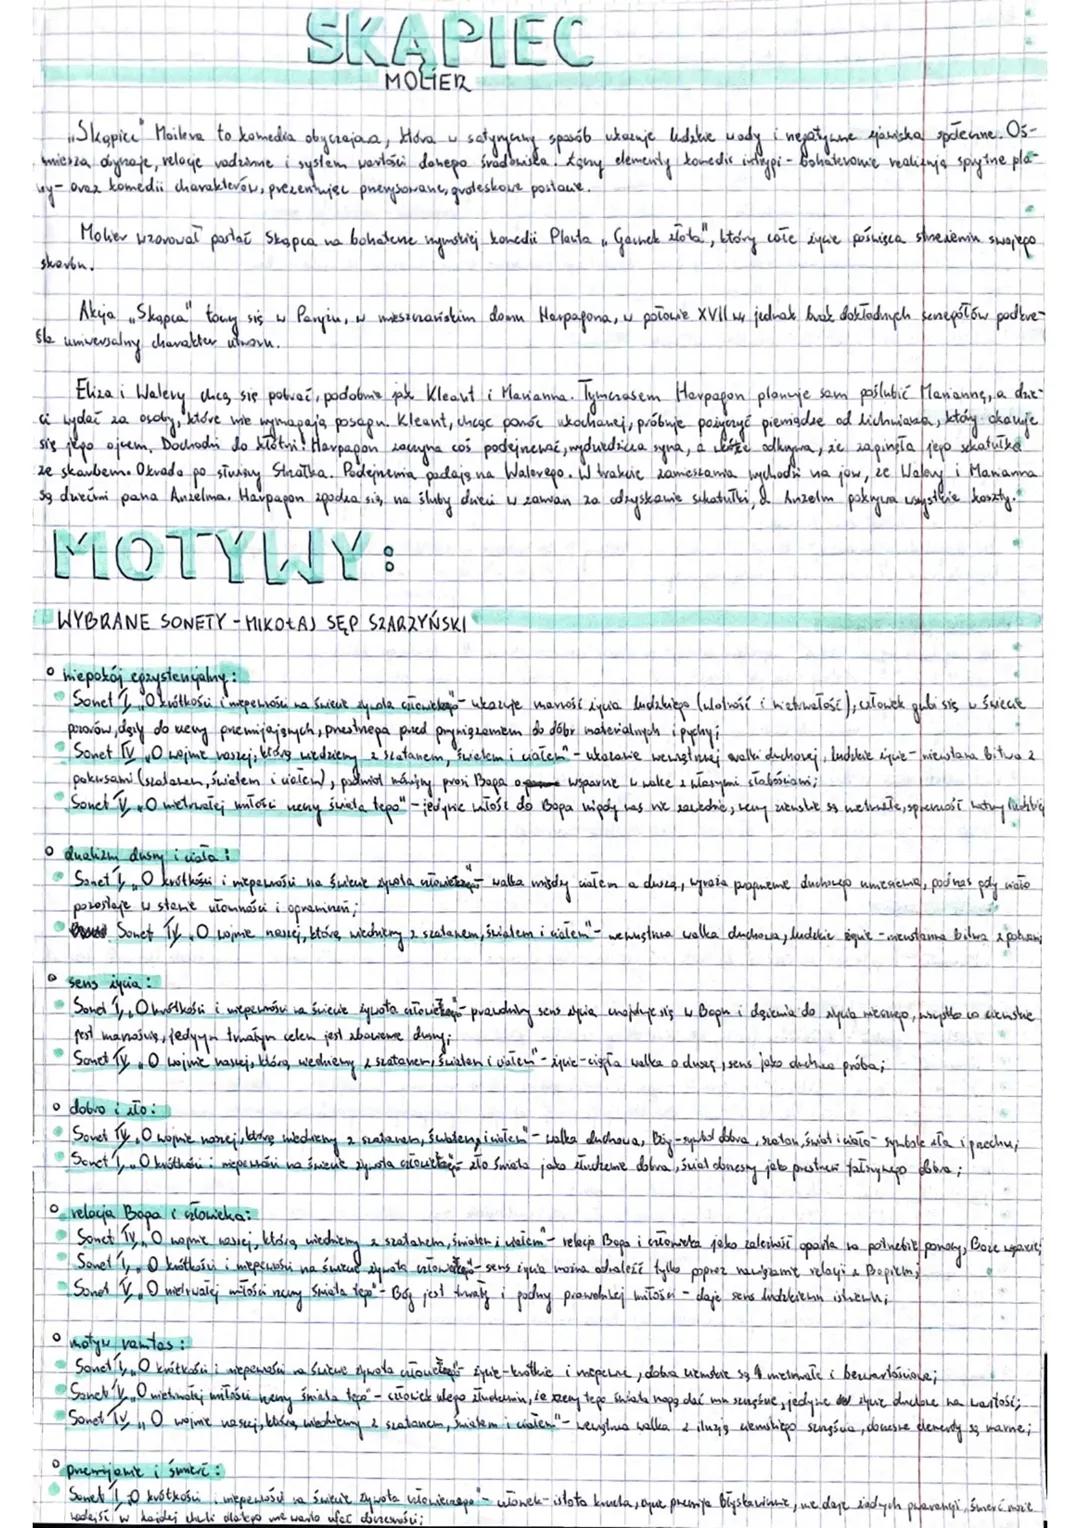 SKĄPIEC
MOLIER
"Skąpiec" Moliera to komedia obyczajowa, która w satyryczny sposób ukazuje ludzkie wady i negatywne zjawiska społeczne. Oś-
miesza obyczaje, relacje rodzinne i system wartości danego środowiska. Łączy elementy komedii intrygi - bohaterowie realizują sprytne pla-
ny - oraz komedii charakterów, prezentując przerysowane, groteskowe postacie.
Molier wzorował postać Skąpca na bohaterze rzymskiej komedii Plauta „Garnek złota", który całe życie poświęca strzeżeniu swojego
skarbu.
Akcja „Skąpca" toczy się w Paryżu, w mieszczańskim domu Harpagona, w połowie XVII w, jednak brak dokładnych szczegółów podkre-
śla uniwersalny charakter utworu.
Eliza i Walery chcą się pobrać, podobnie jak Kleant i Marianna. Tymczasem Harpagon planuje sam poślubić Mariannę, a dzie-
ci wydać za osoby, które nie wymagają posagu. Kleant, chcąc pomóc ukochanej, próbuje pożyczyć pieniądze od lichwiarza, który okazuje
się jego ojcem. Dochodzi do kłótni! Harpagon zaczyna coś podejrzewać, wydziedzicza syna, a także odkrywa, że zaginęła jego szkatułka
ze skarbem. Okrada go służący Strzałka. Podejrzenia padają na Walerego. W trakcie zamieszania wychodzi na jaw, że Walery i Marianna
są dziećmi pana Anzelma. Harpagon zgadza się na śluby dzieci w zamian za odzyskanie szkatułki, a Anzelm pokrywa wszystkie koszty.
MOTYWY:
WYBRANE SONETY - MIKOŁAJ SĘP SZARZYŃSKI
niepokój egzystencjalny:
Sonet I „O krótkości i niepewności na świecie żywota człowieczego" - ukazuje marność życia ludzkiego (ulotność i nietrwałość), człowiek gubi się w świecie
pozorów, dąży do rzeczy przemijających, przestrzega przed przywiązaniem do dóbr materialnych i pychy;
Sonet IV „O wojnie naszej, którą wiedziemy z szatanem, światem i ciałem" - ukazanie wewnętrznej walki duchowej, ludzkie życie - nieustanna bitwa z
pokusami (szatanem, światem i ciałem), podmiot mówiący prosi Boga o wsparcie w walce z własnymi słabościami;
Sonet V „O nietrwałej miłości rzeczy świata tego" - jedynie miłość do Boga nigdy nas nie zawiedzie, rzeczy ziemskie są nietrwałe, sprzeczność natury ludzkiej
dualizm duszy i ciała:
Sonet I „O krótkości i niepewności na świecie żywota człowieczego" - walka między ciałem a duszą, wyraża pragnienie duchowego, podczas gdy ciało
pozostaje w stanie ułomności i ograniczeń;
Sonet IV „O wojnie naszej, którą wiedziemy z szatanem, światem i ciałem" - wewnętrzna walka duchowa, ludzkie życie - nieustanna bitwa z pokusami;
sens życia:
Sonet I „O krótkości i niepewności na świecie żywota człowieczego" - prawdziwy sens życia znajduje się w Bogu i dążenia do życia wiecznego, wszystko co ziemskie
jest marnością, jedynym trwałym celem jest zbawienie duszy;
Sonet IV „O wojnie naszej, którą wiedziemy z szatanem, światem i ciałem" - życie - ciągła walka o duszę, sens jako duchowa próba;
dobro i zło:
Sonet IV „O wojnie naszej, którą wiedziemy z szatanem, światem i ciałem" - walka duchowa, Bóg - symbol dobra, szatan, świat i ciało - symbole zła i grzechu;
Sonet I „O krótkości i niepewności na świecie żywota człowieczego" - zło świata jako złudzenie dobra, świat doczesny jako przestrzeń fałszywego dobra;
relacja Boga i człowieka:
Sonet IV „O wojnie naszej, którą wiedziemy z szatanem, światem i ciałem" - relacja Boga i człowieka jako zależność oparta na potrzebie pomocy, Boże wsparcie;
Sonet I „O krótkości i niepewności na świecie żywota człowieczego" - sens życia można odnaleźć tylko poprzez nawiązanie relacji z Bogiem;
Sonet V „O nietrwałej miłości rzeczy świata tego" - Bóg jest trwały i godny prawdziwej miłości - daje sens ludzkiemu istnieniu;
motyw vanitas:
Sonet I „O krótkości i niepewności na świecie żywota człowieczego" - życie - krótkie i niepewne, dobra ziemskie są nietrwałe i bezwartościowe;
Sonet V „O nietrwałej miłości rzeczy świata tego" - człowiek ulega złudzeniu, że rzeczy tego świata mogą dać mu szczęście, jedynie życie duchowe ma wartość;
Sonet IV „O wojnie naszej, którą wiedziemy z szatanem, światem i ciałem" - wewnętrzna walka z iluzją ziemskiego szczęścia, doczesne elementy są marne;
przemijanie i śmierć:
Sonet I „O krótkości i niepewności na świecie żywota człowieczego" - człowiek - istota krucha, życie przemija błyskawicznie, nie daje żadnych gwarancji, śmierć może
nadejść w każdej chwili dlatego nie warto ufać doczesności;